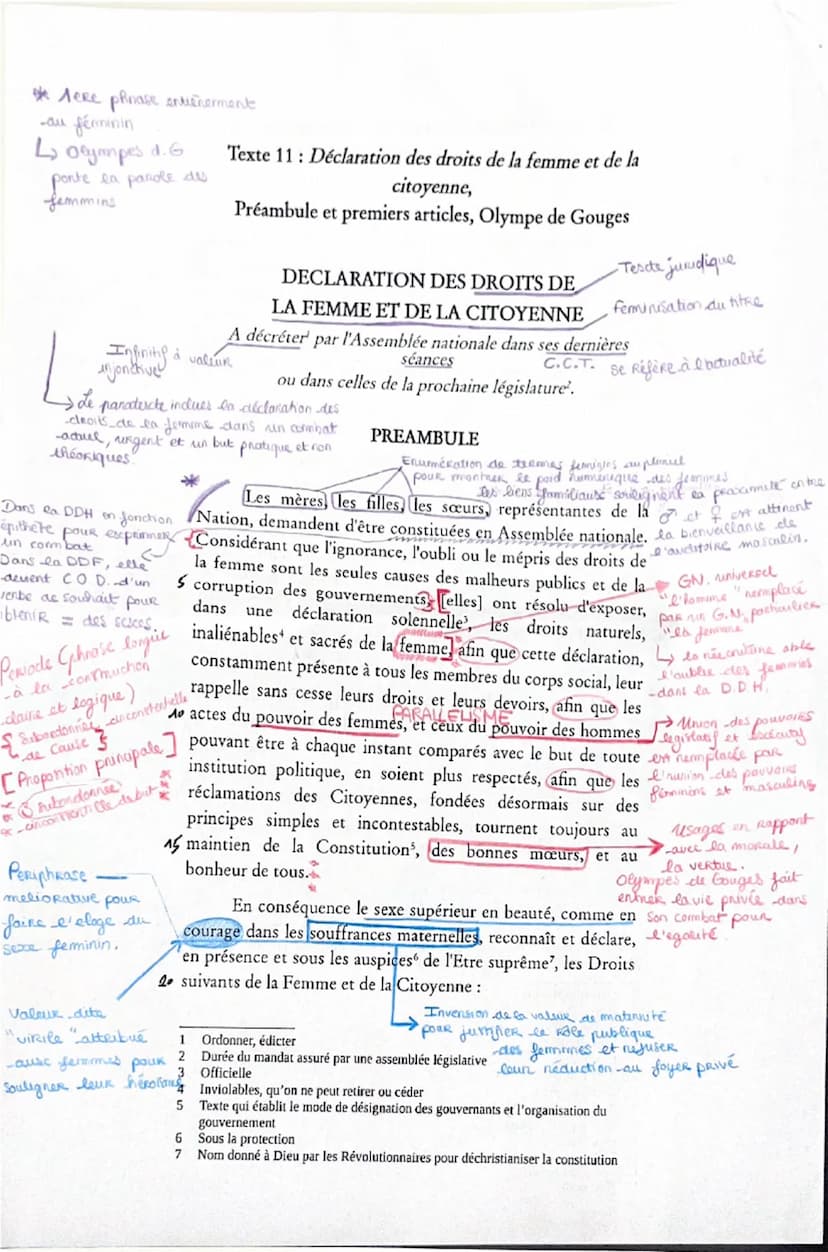 * 1ere phrase entièrement
au féminin
↳ Olympes d.G
porte la parole des
femmins
Texte 11 : Déclaration des droits de la femme et de la
citoyenne,
Préambule et premiers articles, Olympe de Gouges
DECLARATION DES DROITS DE
LA FEMME ET DE LA CITOYENNE
Texte juridique
Feminisation du titre
A décréter¹ par l'Assemblée nationale dans ses dernières
séances
ou dans celles de la prochaine législature².
Infinitif à valeur
injonctive
C.C.T. se Réfère à l'actualité
→ Le paratexte inclues la déclaration des
droits de la femme dans un combat
actuel, urgent et un but pratique et non
théoriques.
PREAMBULE
Enumération de termes féminins au pluriel
pour montrer le poid numérique des femmes
les liens familiaux soulignent la proximité entre
♂ et ♀ et attirent
la bienveillance de
l'auditoire masculin.
*
Les mères, les filles, les sœurs, représentantes de la
Nation, demandent d'être constituées en Assemblée nationale.
Considérant que l'ignorance, l'oubli ou le mépris des droits de
la femme sont les seules causes des malheurs publics et de la
5 corruption des gouvernements, [elles] ont résolu d'exposer,
dans une déclaration solennelle³, les droits naturels,
inaliénables⁴ et sacrés de la femme, afin que cette déclaration,
constamment présente à tous les membres du corps social, leur
rappelle sans cesse leurs droits et leurs devoirs, afin que les
10 actes du pouvoir des femmes, et ceux du pouvoir des hommes
pouvant être à chaque instant comparés avec le but de toute
institution politique, en soient plus respectés, afin que les
réclamations des Citoyennes, fondées désormais sur des
principes simples et incontestables, tournent toujours au
15 maintien de la Constitution⁵, des bonnes mœurs, et au
bonheur de tous.
PARALLELISME
Dans la DDH en fonction
épithète pour exprimer
un combat
Dans la DDF, elle
devient C O D d'un
verbe de souhait pour
= des sexes
Période (phrase longue
à la construction
claire et logique)
{ Subordonnée circonstancielle
de cause }
[Proposition principale]
* 3 subordonnée
* circonstancielle de but
GN. universel
"l'homme" remplacé
par un G.N. particulier
"la femme"
↳ la réécriture
l'oublie des femmes
dans la D.D.H.
→ Union des pouvoirs
législatif et exécutif
est remplacée par
l'union des pouvoirs
féminins et masculins
Usages en rapport
avec la morale,
la vertue.
Olympes de Gouges fait
entrer la vie privée dans
son combat pour
l'égalité.
En conséquence le sexe supérieur en beauté, comme en
courage dans les souffrances maternelles, reconnaît et déclare,
en présence et sous les auspices⁶ de l'Etre suprême⁷, les Droits
20 suivants de la Femme et de la Citoyenne :
Périphrase
meliorative pour
faire l'eloge du
sexe feminin.
Valeur dite
"virile" attribué
aux femmes pour
souligner leur héroïsme
Inversion de la valeur de maternité
pour justifier le rôle publique
des femmes et refuser
leur réduction au foyer privé
1 Ordonner, édicter
2 Durée du mandat assuré par une assemblée législative
3 Officielle
4 Inviolables, qu'on ne peut retirer ou céder
5 Texte qui établit le mode de désignation des gouvernants et l'organisation du
gouvernement
6 Sous la protection
7 Nom donné à Dieu par les Révolutionnaires pour déchristianiser la constitution